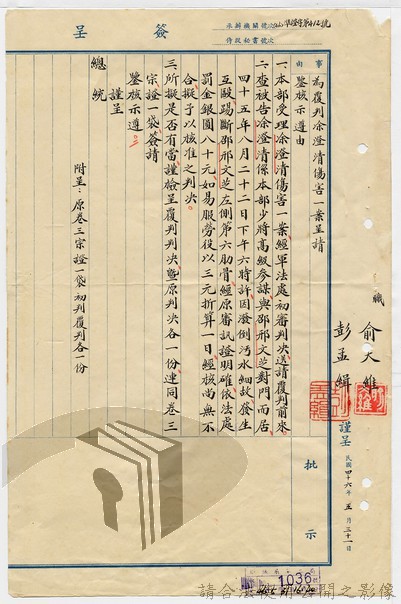 簽呈
事由
為覆判涂澄清傷害一案呈請
鑒核示遵由
一、本部受理涂澄清傷害一案經軍法處初審判決送請覆判前來
二、查被告涂澄清係本部少將高級參謀與邵邢文芝對門而居
四十五年八月二十二日下午六時許因潑倒污水細故發生
互毆踢斷邵邢文芝左側第六肋骨經原審訊證明確依法處
罰金銀圓八十元如易服勞役以三元折算一日經核尚無不
合擬予以核准之判決
三、所擬是否有當謹檢呈覆判判決暨原判決各一份連同卷三
宗證一袋簽請
鑒核示遵
謹呈
總統
附呈：原卷三宗證一袋初判覆判各一份
職
俞大維
彭孟緝
謹呈
民國四十六年五月三十一日
批示
1036
請合法使用公開之影像